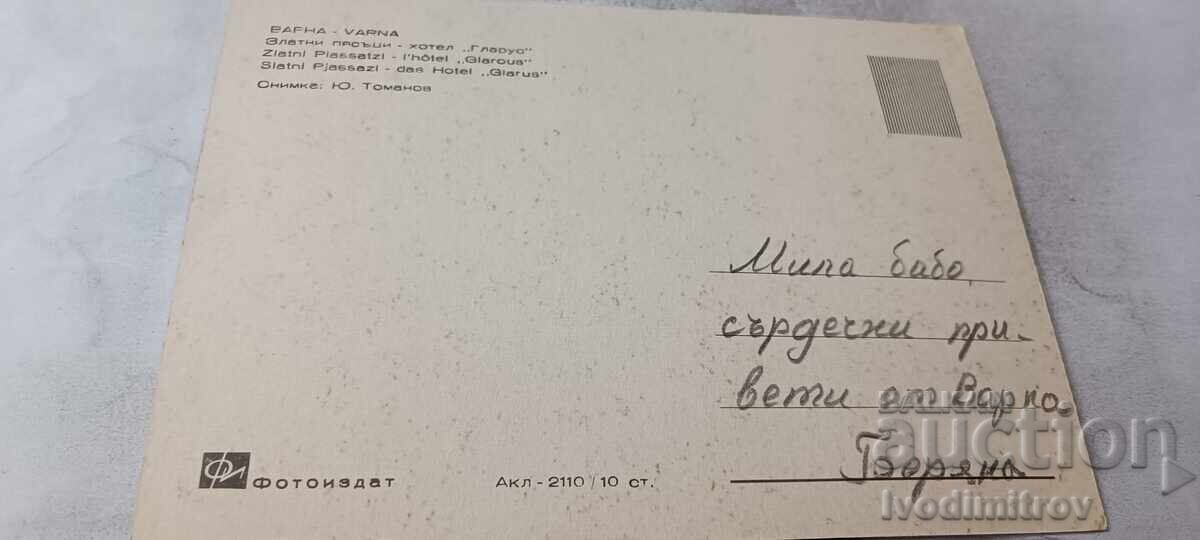 ВАРНА - VARNA
Златни пясъци - хотел „Гларус"
Zlatni Piassatzi - l'hôtel „Glarous"
Slatni Pjassazi - das Hotel „Glarus"
Снимка: Ю. Томанов
Мила бабо,
сърдечни при-
вети от Варна.
Боряна
ФИ Фотоиздат
Акл - 2110 / 10 ст.
auction
Ivodimitrov